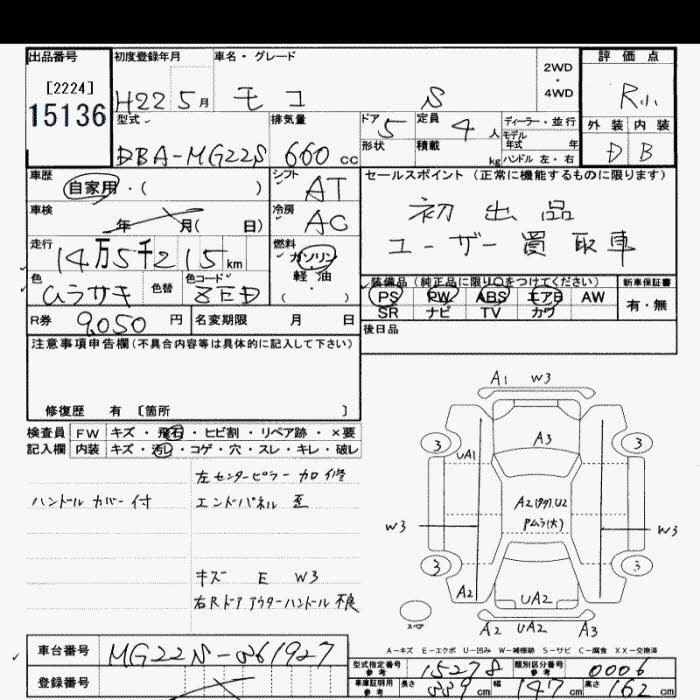 出品番号 初度登録年月 車名・グレード 2WD・4WD 評価点
[2224]
15136 H22 5月 モコ S R小
型式 排気量 ドア 5 定員 4人 ディーラー・並行 外装 内装
DBA-MG22S 660cc 形状 積載 kg モデル年式 年 ハンドル 左・右 D B
車歴 自家用・( ) シフト AT セールスポイント(正常に機能するものに限ります)
車検 年 月( 日) 冷房 AC 初出品
走行 14万5千215km 燃料 ガソリン 軽・油 ( ・ ) ユーザー買取車
色 ムラサキ 色替 色コード ZED 装備品(純正品に限り○をつけてください) 新車保証書
PS PW ABS エアB AW 有・無
SR ナビ TV カワ
R券 9,050円 名変期限 月 日 後日品
注意事項申告欄(不具合内容等は具体的に記入して下さい)
修復歴 有 [箇所 ]
検査員 FW キズ・飛石・ヒビ割・リペア跡・×要
記入欄 内装 キズ・汚れ・コゲ・穴・スレ・キレ・破レ
左センターピラー カロ修
ハンドルカバー付 エンドパネル 歪
キズ E W3
右Rドア アウターハンドル不良
A1 W3
A3
3 3
UA1
A2 (99) U2
Pムラ(大)
W3 W3
3 3
A2
UA2
スペア
A2 UA2 A3
A-キズ E-エクボ U-凹み W-補修跡 S-サビ C-腐食 XX-交換済
車台番号 MG22S-861927
型式指定番号 参考 15278 類別区分番号 参考 0006
登録番号
車庫証明用 参考 長さ 339cm 幅 147cm 高さ 162cm